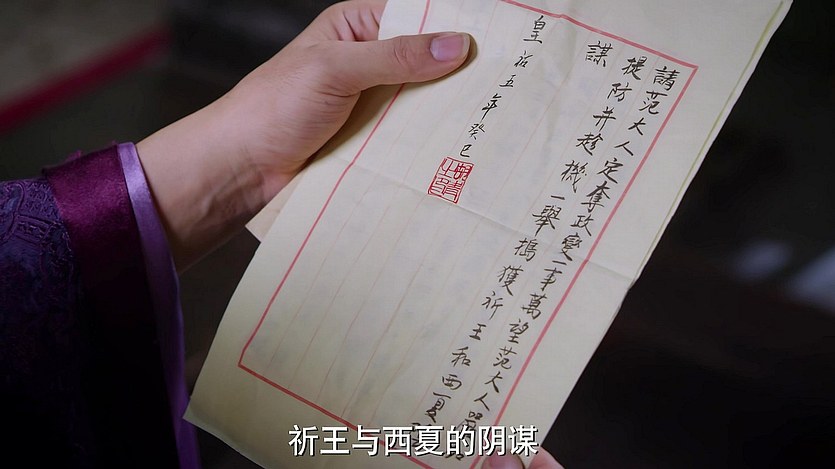 請范大人定奪政變一事萬望范大人
提防并趁機一舉搗獲祈王和西夏
謀
皇祐五年癸巳
祈王与西夏的阴谋